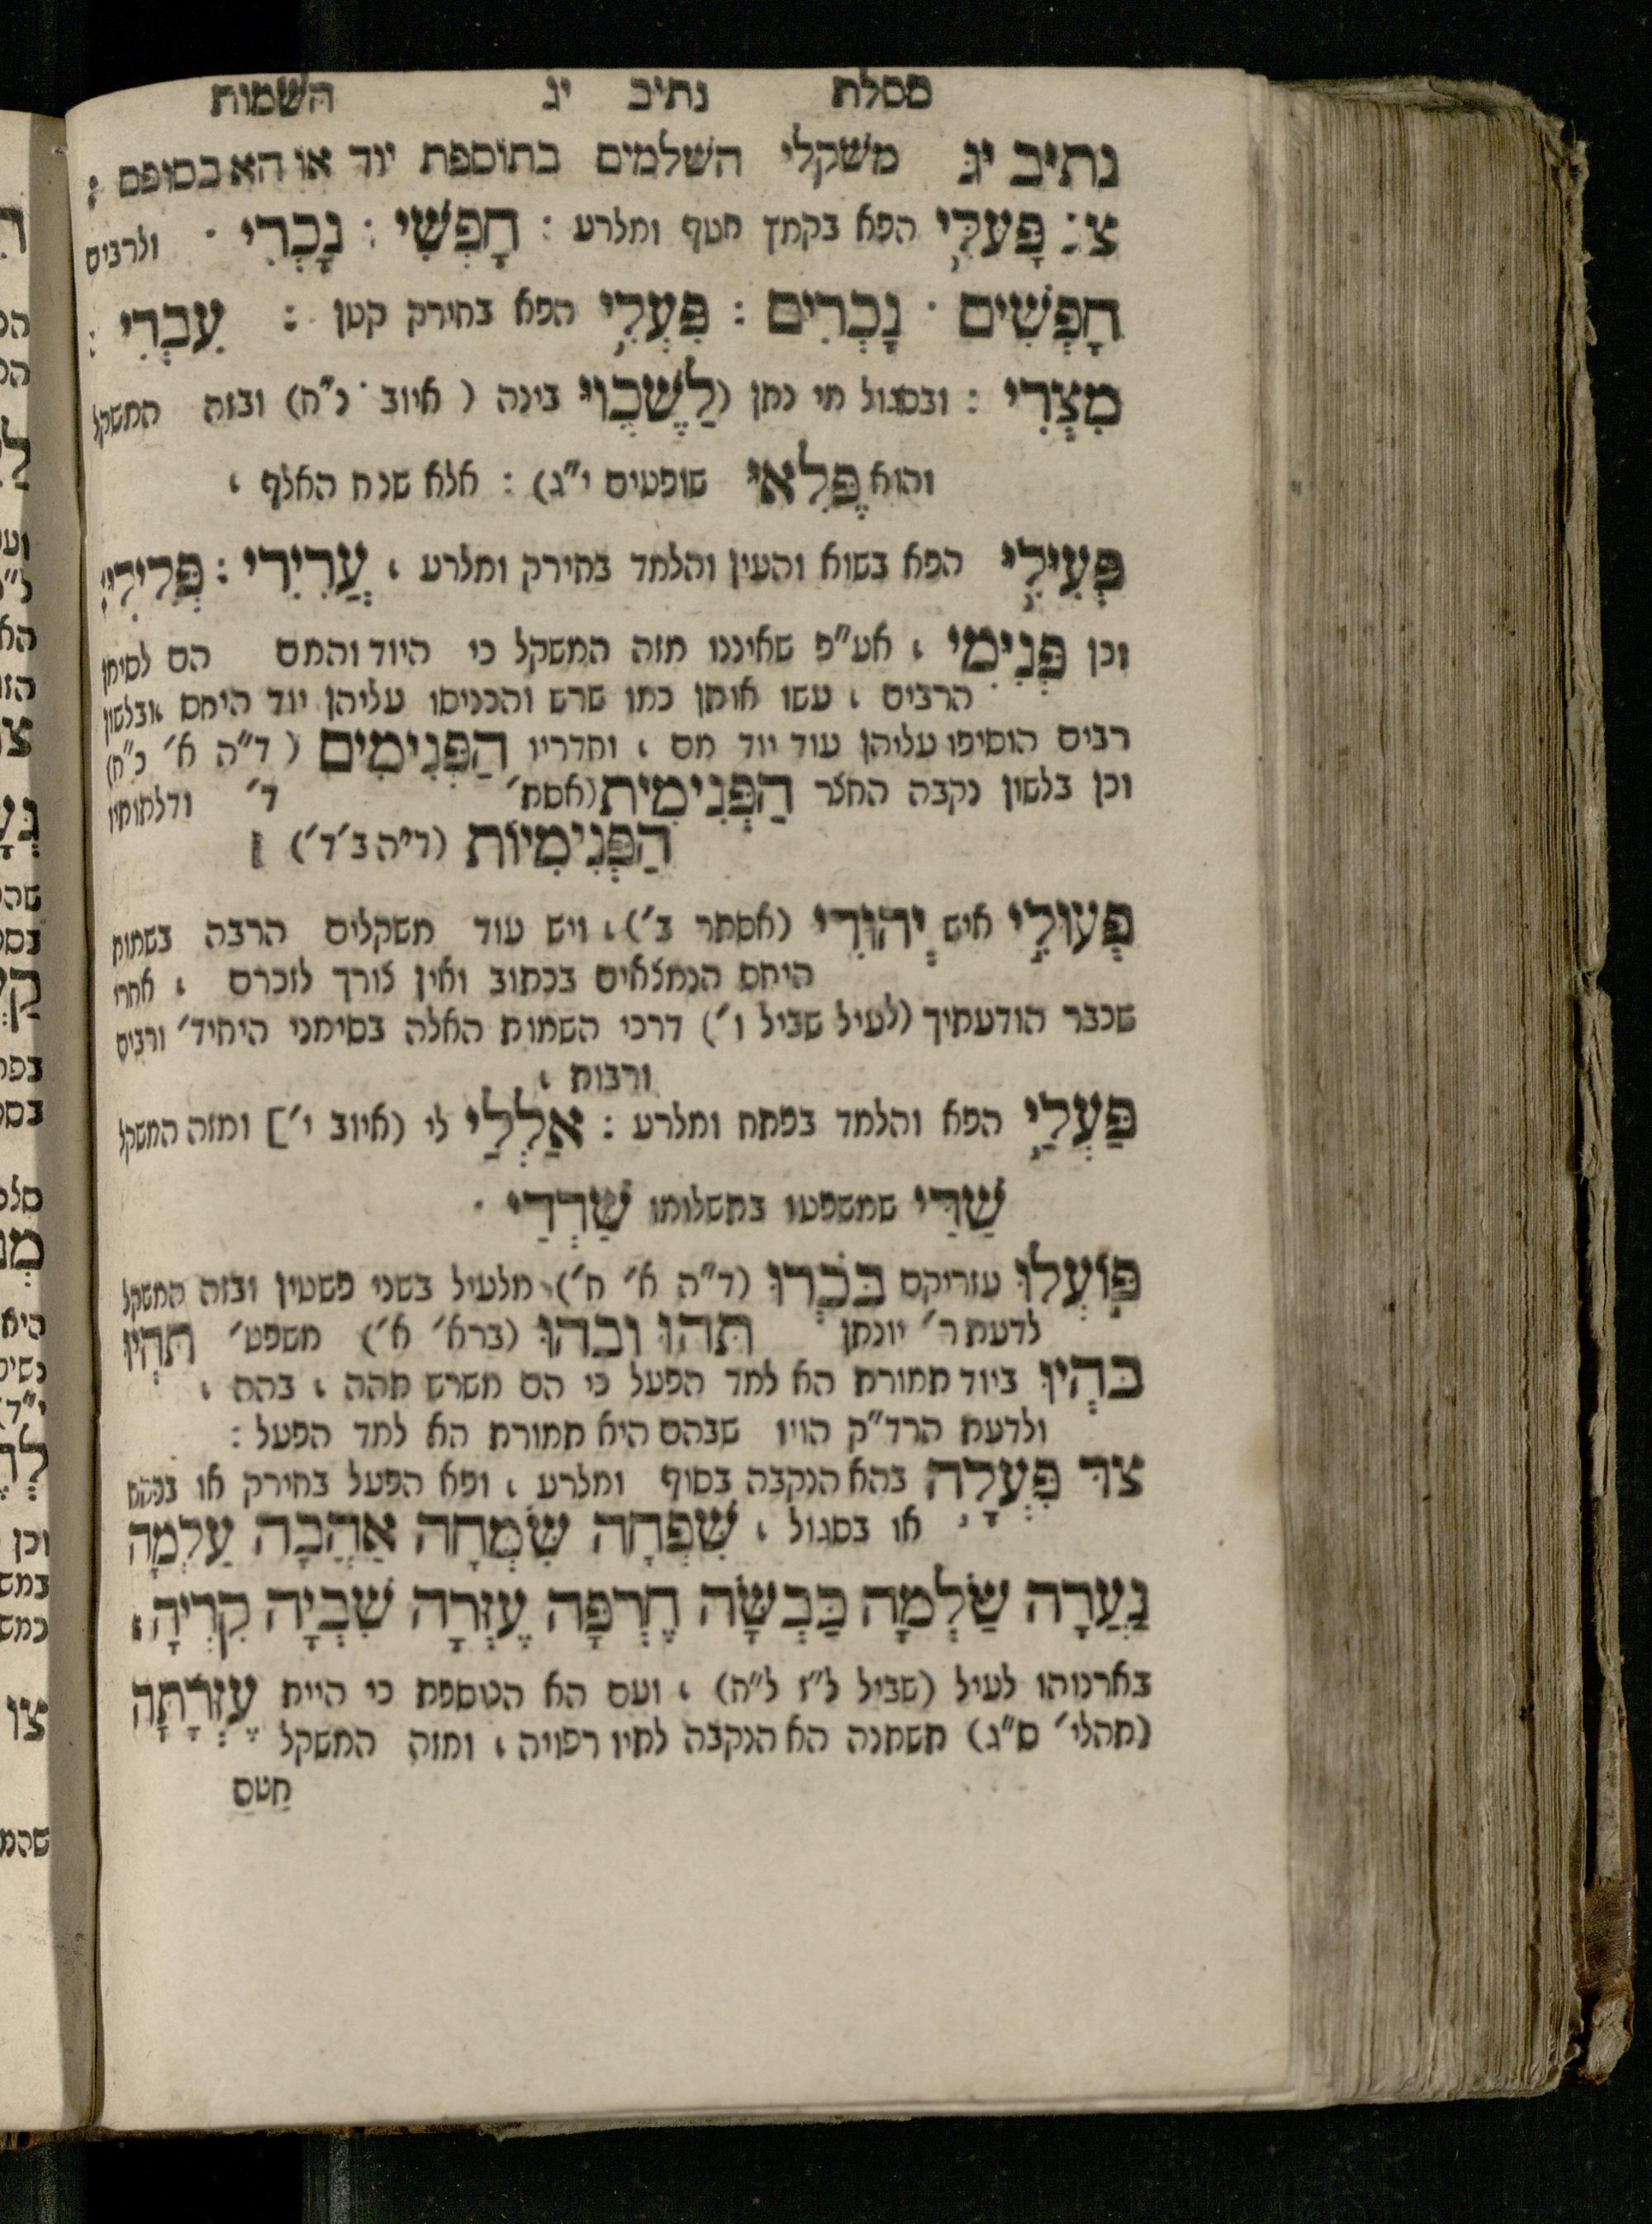 מסלת נתיב יג השמות
נתיב יג משקלי השלמים בתוספת יוד או הא בסופם :
צ׃ פָּעלִי הפא בקמץ חטף ומלרע : חָפְשִׁי : נָכְרִי · ולרבים
חָפְשִׁים · נָכְרִים : פִּעְלִי הפא בחירק קטן : עִבְרִי :
מִצְרִי : ובסגול מי נתן (לַשֶּׂכְוִי בינה ( איוב · כ״ח) ובזה המשקל
והוא פֶּלִאי שופטים י״ג) : אלא שנח האלף ,
פְּעִילִי הפא בשוא והעין והלמד בחירק ומלרע , עֲרִירִי : פְּלִילִי :
וכן פְּנִימִי , אע״פ שאיננו מזה המשקל כי היוד והמם הם לסימן
הרבים , עשו אותן כמו שרש והכניסו עליהן יוד היחס , ובלשון
רבים הוסיפו עליהן עוד יוד מם , וחדריו הַפְּנִימִים ( ד״ה א׳ כ״ח)
וכן בלשון נקבה החצר הַפְּנִימִית (אסת׳ ד׳ ודלתותיו
הַפְּנִימִיוֹת (ד״ה ב׳ ד׳)
פְעוּלִי איש יְהוּדִי (אסתר ב׳) , ויש עוד משקלים הרבה בשמות
היחס הנמצאים בכתוב ואין צורך לזכרם , אחרי
שכבר הודעתיך (לעיל שביל ו׳) דרכי השמות האלה בסימני היחיד׳ ורבים
ורבות ,
פַּעְלַי הפא והלמד בפתח ומלרע : אַלְלַי לי (איוב י׳] ומזה המשקל
שַׁדַּי שמשפטו בתשלומו שַׁדְדַי ·
פּוֹעְלוּ עזריקם בֹּכְרוּ (ד״ה א׳ ח׳) מלעיל בשני פשטין ובזה המשקל
לדעת ר׳ יונתן תֹּהוּ וּבֹהוּ (ברא׳ א׳) משפט׳ תֹּהְיוּ
בֹּהְיוּ ביוד תמורת הא למד הפעל כי הם משרש תהה , בהה ,
ולדעת הרד״ק הויו שבהם היא תמורת הא למד הפעל :
צד פִּעְלָה בהא הנקבה בסוף ומלרע , ופא הפעל בחירק או בפתח
או בסגול , שִׁפְחָה שִׂמְחָה אַהֲבָה עַלְמָה
נַעֲרָה שַׂלְמָה כַּבְשָׂה חֶרְפָּה עֶזְרָה שִׁבְיָה קִרְיָה ,
בארנוהו לעיל (שביל ל״ז ל״ח) , ועם הא הנוספת כי היית עֶזְרָתָה
(תהלי׳ ס״ג) תשתנה הא הנקבה לתיו רפויה , ומזה המשקל
חַטסַ